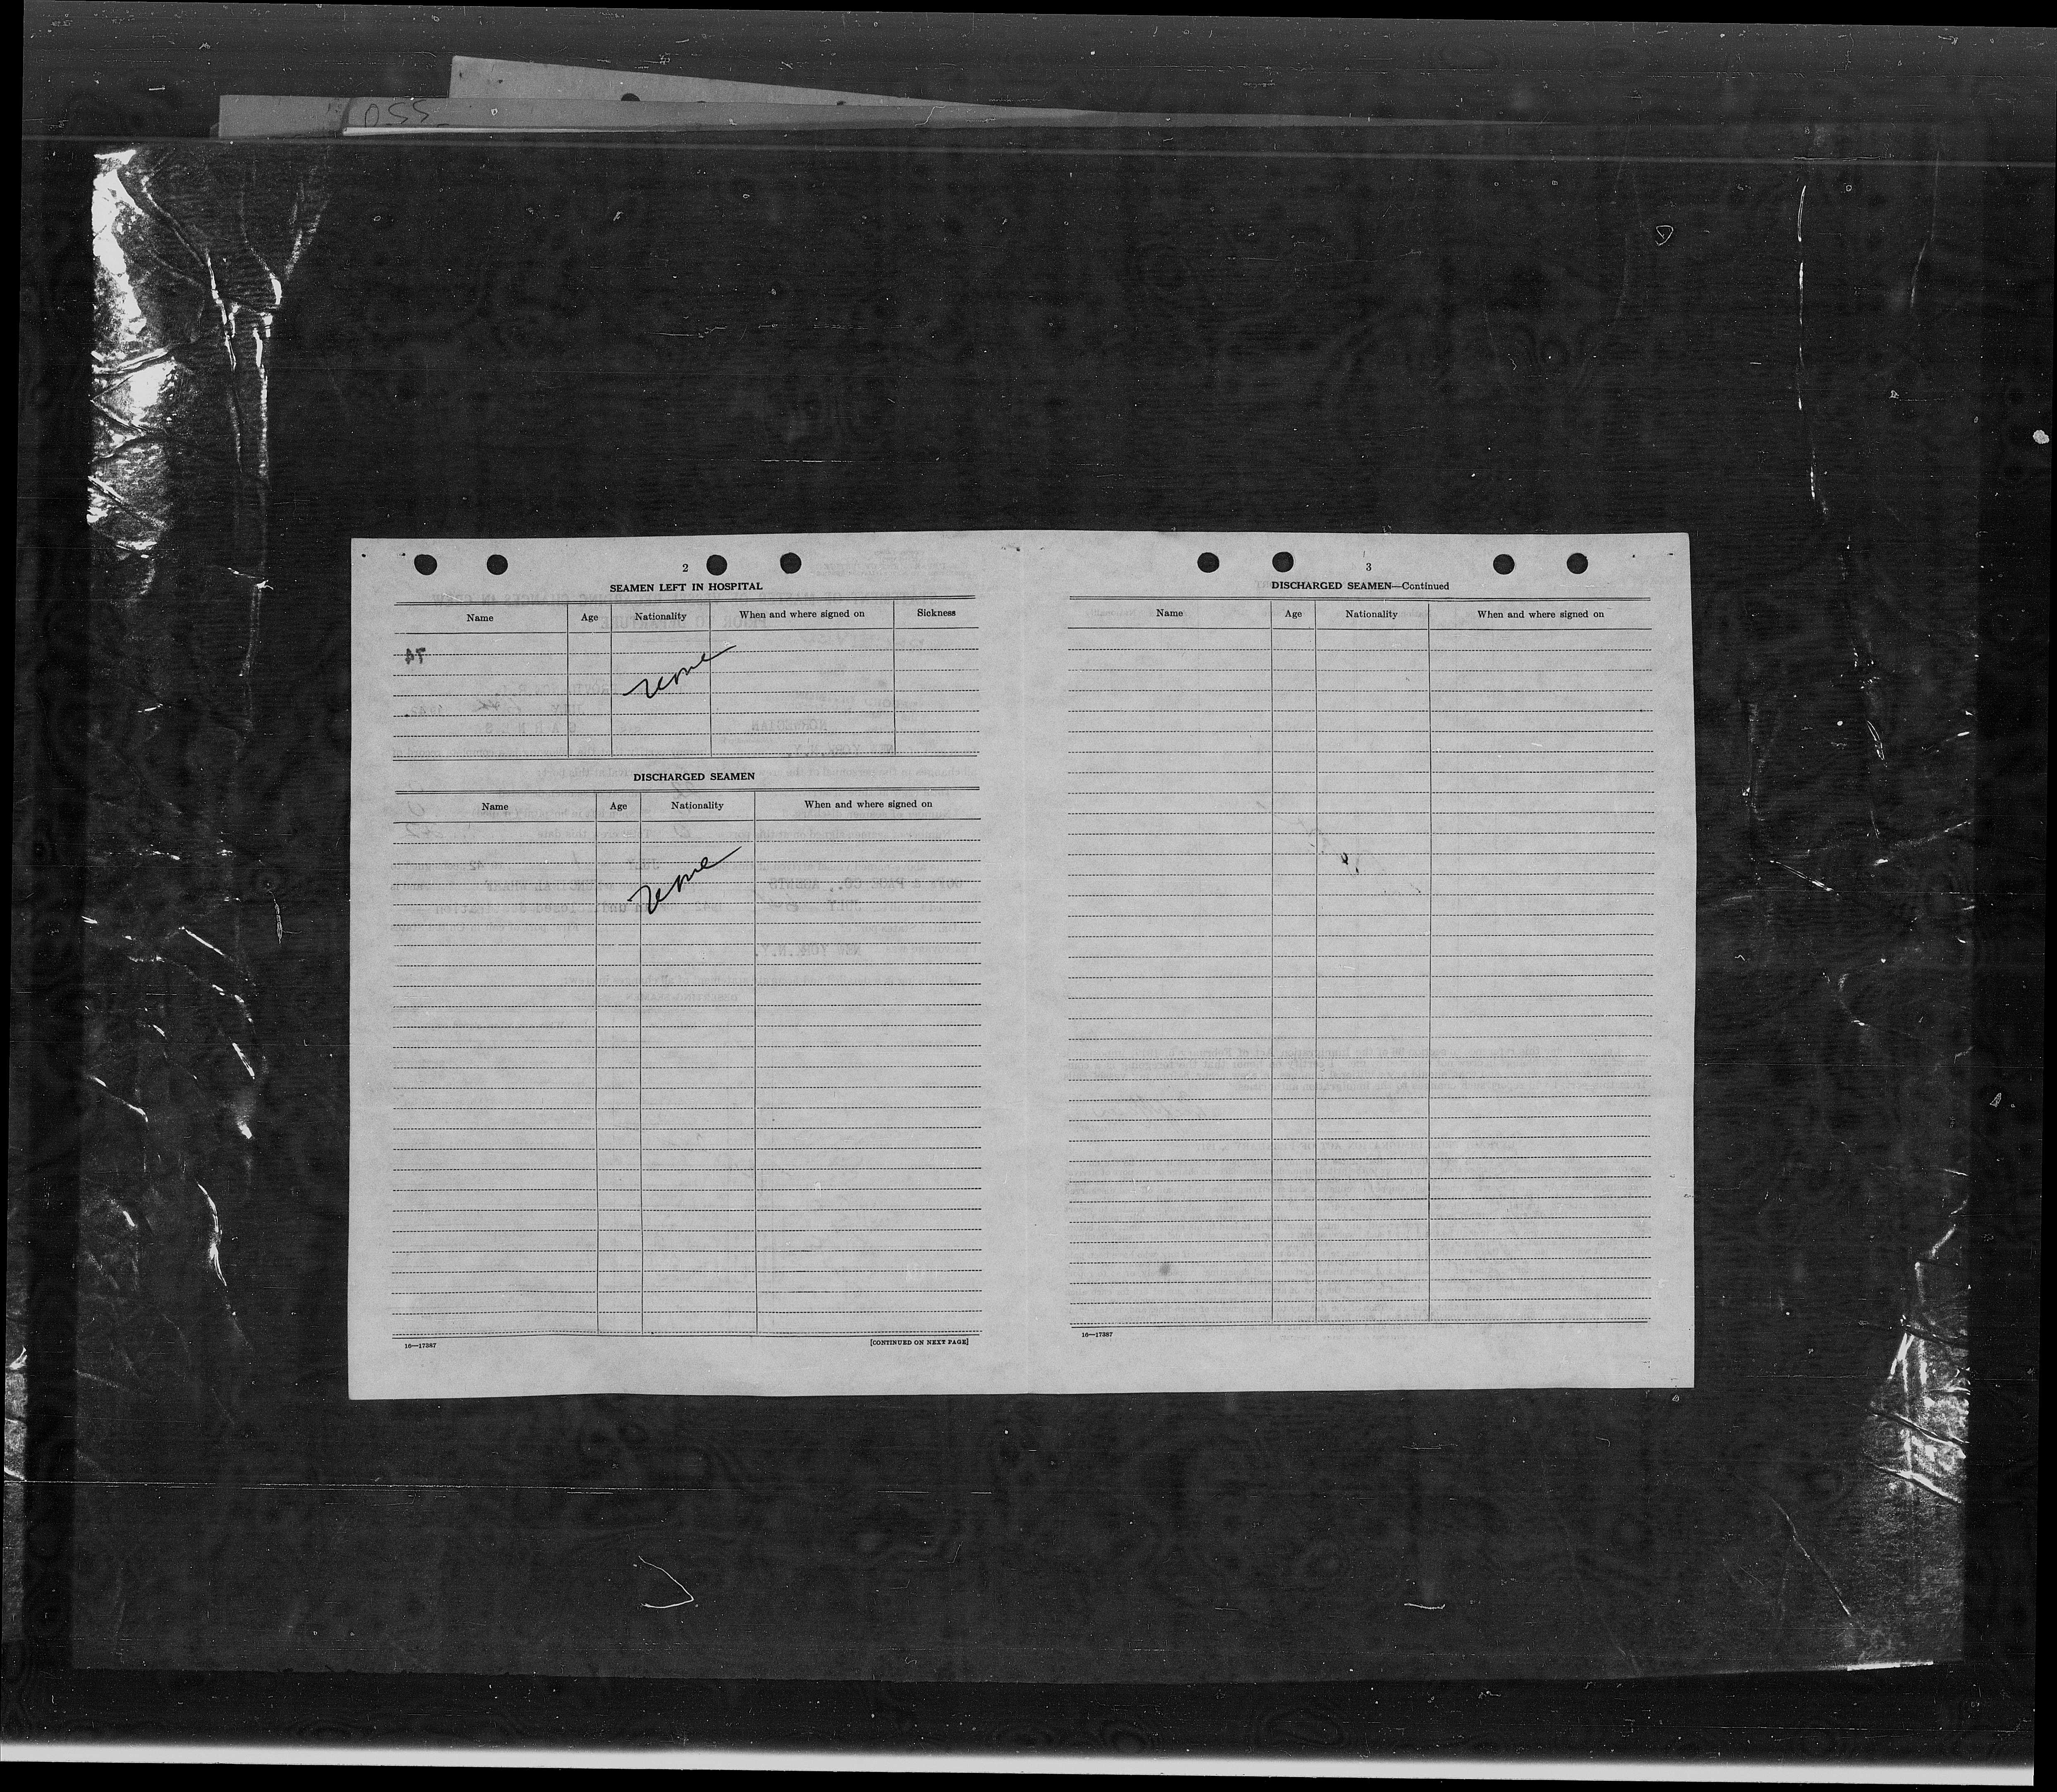 2
SEAMEN LEFT IN HOSPITAL
Name Age Nationality When and where signed on Sickness
none
DISCHARGED SEAMEN
Name Age Nationality When and where signed on
none
16—17387 [CONTINUED ON NEXT PAGE]
3
DISCHARGED SEAMEN—Continued
Name Age Nationality When and where signed on
16—17387